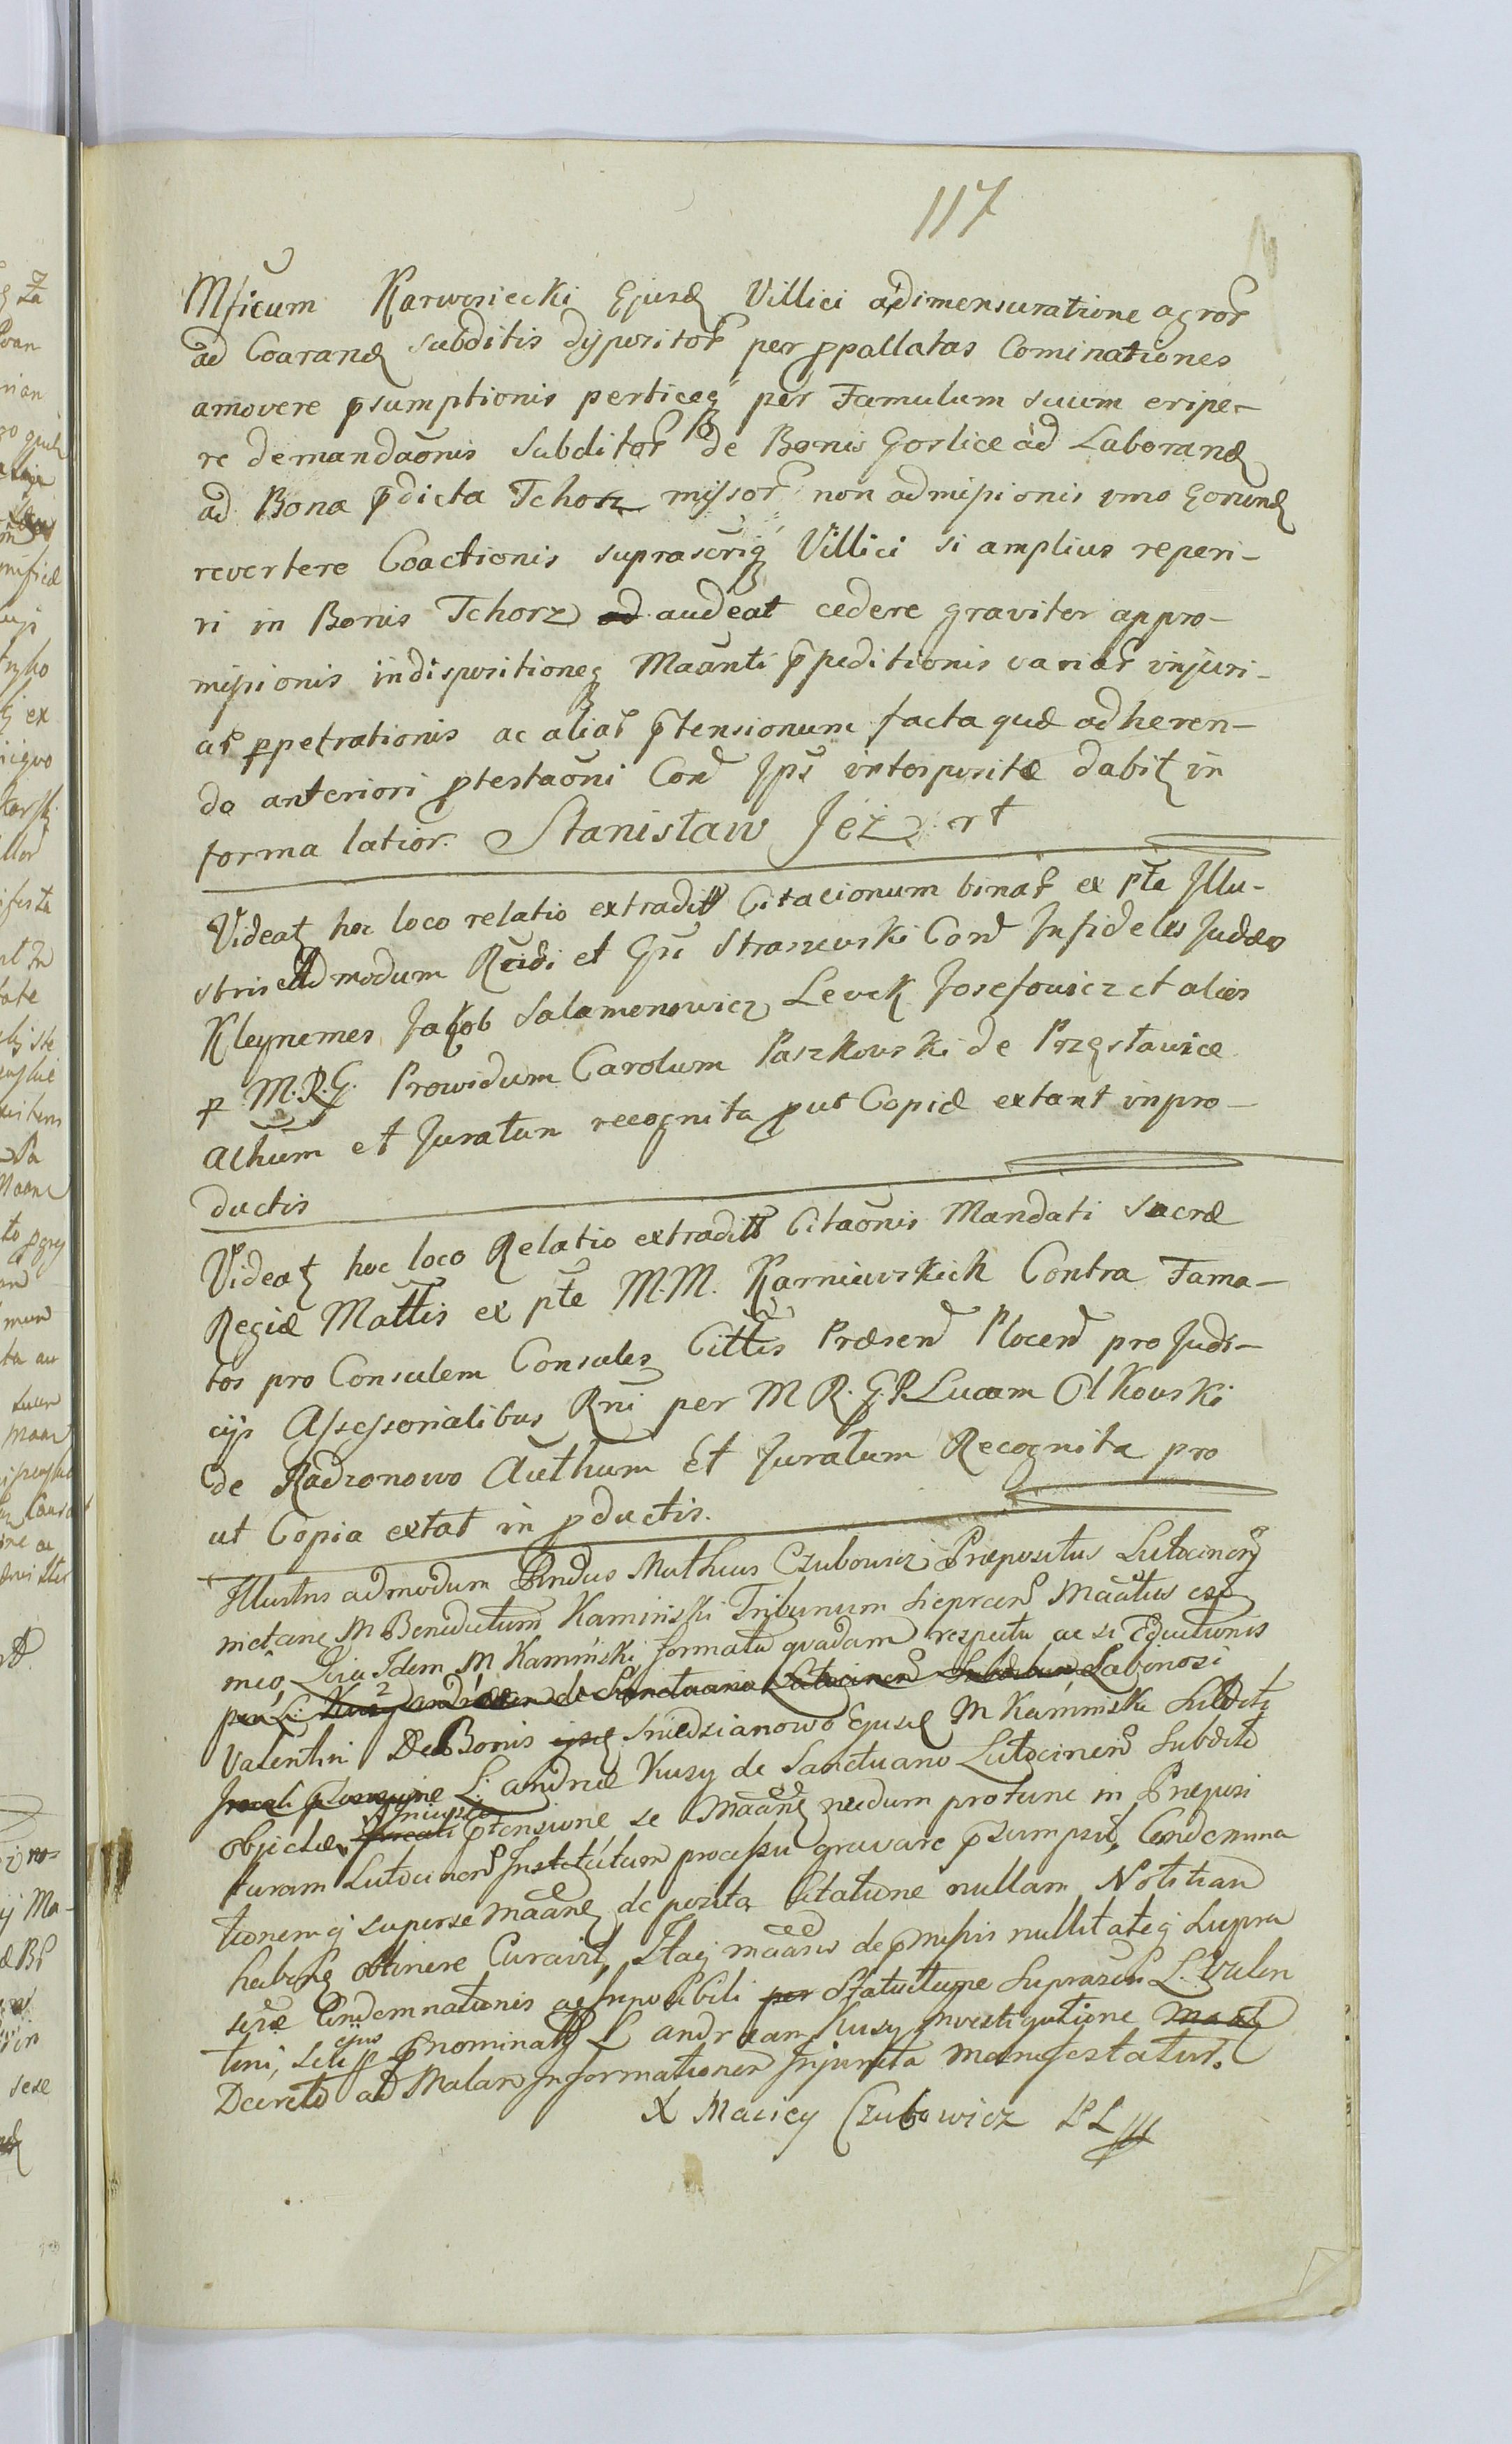 117
Mficum Karwosiecki Ejusd Villici a dimensuratione agror
ad Coarand subditis dispositor per ppallatas Cominationes
amovere psumptionis perticeq per Famulum suum eripe-
re demandaonis Subditor de Bonis Gorlice ad Laborand
ad Bona pdicta Tchorz missor non admissionis imo Eorund
revertere Coactionis suprascrig Villici si amplius reperi-
ri in Bonis Tchorz audeat cedere graviter appro-
missionis indispositioneq Maanti ppeditionis variar injuri-
ar ppetrationis ac aliar ptensionum facta quæ adheren-
do anteriori ptestaoni Con Ips interpositæ dabit in
forma latior. Stanisław Jeż rt
Videat hoc loco relatio extradit Citacionum binar ex pte Illu-
stris Admodum Rndi et Gsi Straszewski Con Infideles Judæos
Kleynemes Jakob Salamonowicz Levek Josefowicz et alios
p M.R.G. Prowidum Carolum Paszkowski de Przesławice
Athum et Juratum recognita put Copiæ extant in pro-
ductis
Videat hoc loco Relatio extradit Citaonis Mandati Sacræ
Regiæ Mattis ex pte M.M. Karniewskich Contra Fama-
tos pro Consulem Consules Cittis Præsen Plocen pro Judi-
cijs Assessorialibus Rni per M R. G. P. Lucam Olkowski
de Radzonowo Authum Et Juratum Recognita pro
ut Copia extat in pductis.
Illustris admodum Rndus Matheus Czubowicz Præpositus Lutocinen
nictane M Benedictum Kamiński Tribunum Sieprcen Maatus est
mio, Idem M Kamiński formata quadam respectu ac si Eductionis
Labinosi
Valentini De Bonis Sniedzianowo Ejusd M Kaminski Subditi
L: andreæ Kusy de Sanctuario Lutocinen Subdito
objectæ ptensione se Maane nedum protunc in Præposi
turam Lutocinen Institutum processu gravare psumpsit, Condemna
tionemq superse maane de posita Citatione nullam Notitiam
haben obtinere Curavit, Itaq maans de pmissis nullitateq Supra
scræ Condemnationis ac Inpossibili Statutione Suprascri L. Valen
tini, ejus pnominati L andream Kusy investigatione
Decreto ad Malam Informationem Injuncta manifestatur.
X Maciey Czubowicz PL